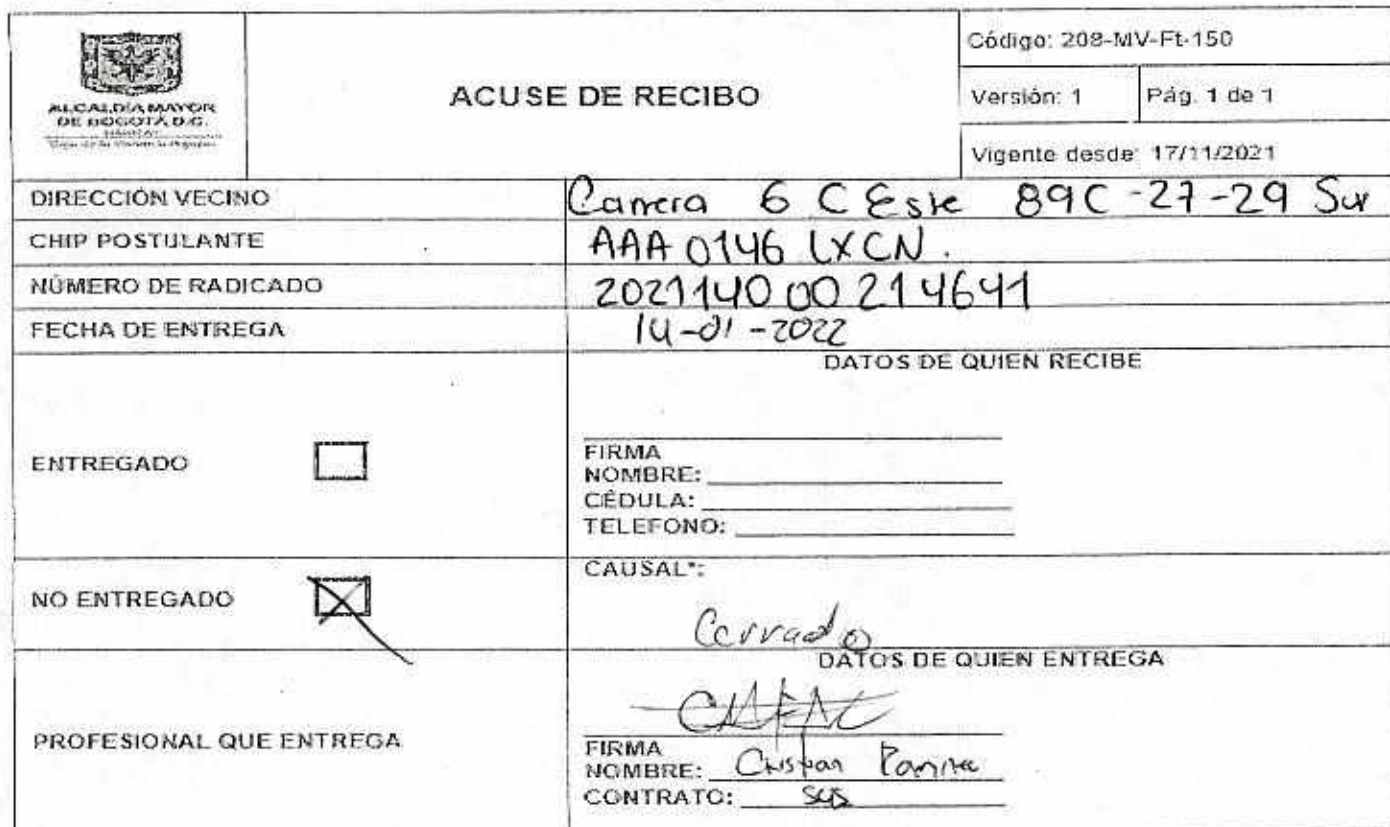 ALCALDÍA MAYOR
DE BOGOTÁ D.C.
ACUSE DE RECIBO
Código: 208-MV-Ft-150
Versión: 1
Pág. 1 de 1
Vigente desde: 17/11/2021
DIRECCIÓN VECINO
Carrera 6 C Este 89C-27-29 Sur
CHIP POSTULANTE
AAA 0146 LXCN.
NÚMERO DE RADICADO
202114000214641
FECHA DE ENTREGA
14-01-2022
DATOS DE QUIEN RECIBE
ENTREGADO
FIRMA
NOMBRE:
CÉDULA:
TELEFONO:
NO ENTREGADO
CAUSAL*:
Cerrado
DATOS DE QUIEN ENTREGA
PROFESIONAL QUE ENTREGA
FIRMA
NOMBRE: Cristian
CONTRATO: